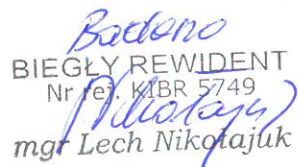 Badano
BIEGŁY REWIDENT
Nr rej. KIBR 5749
Nikołajuk
mgr Lech Nikołajuk